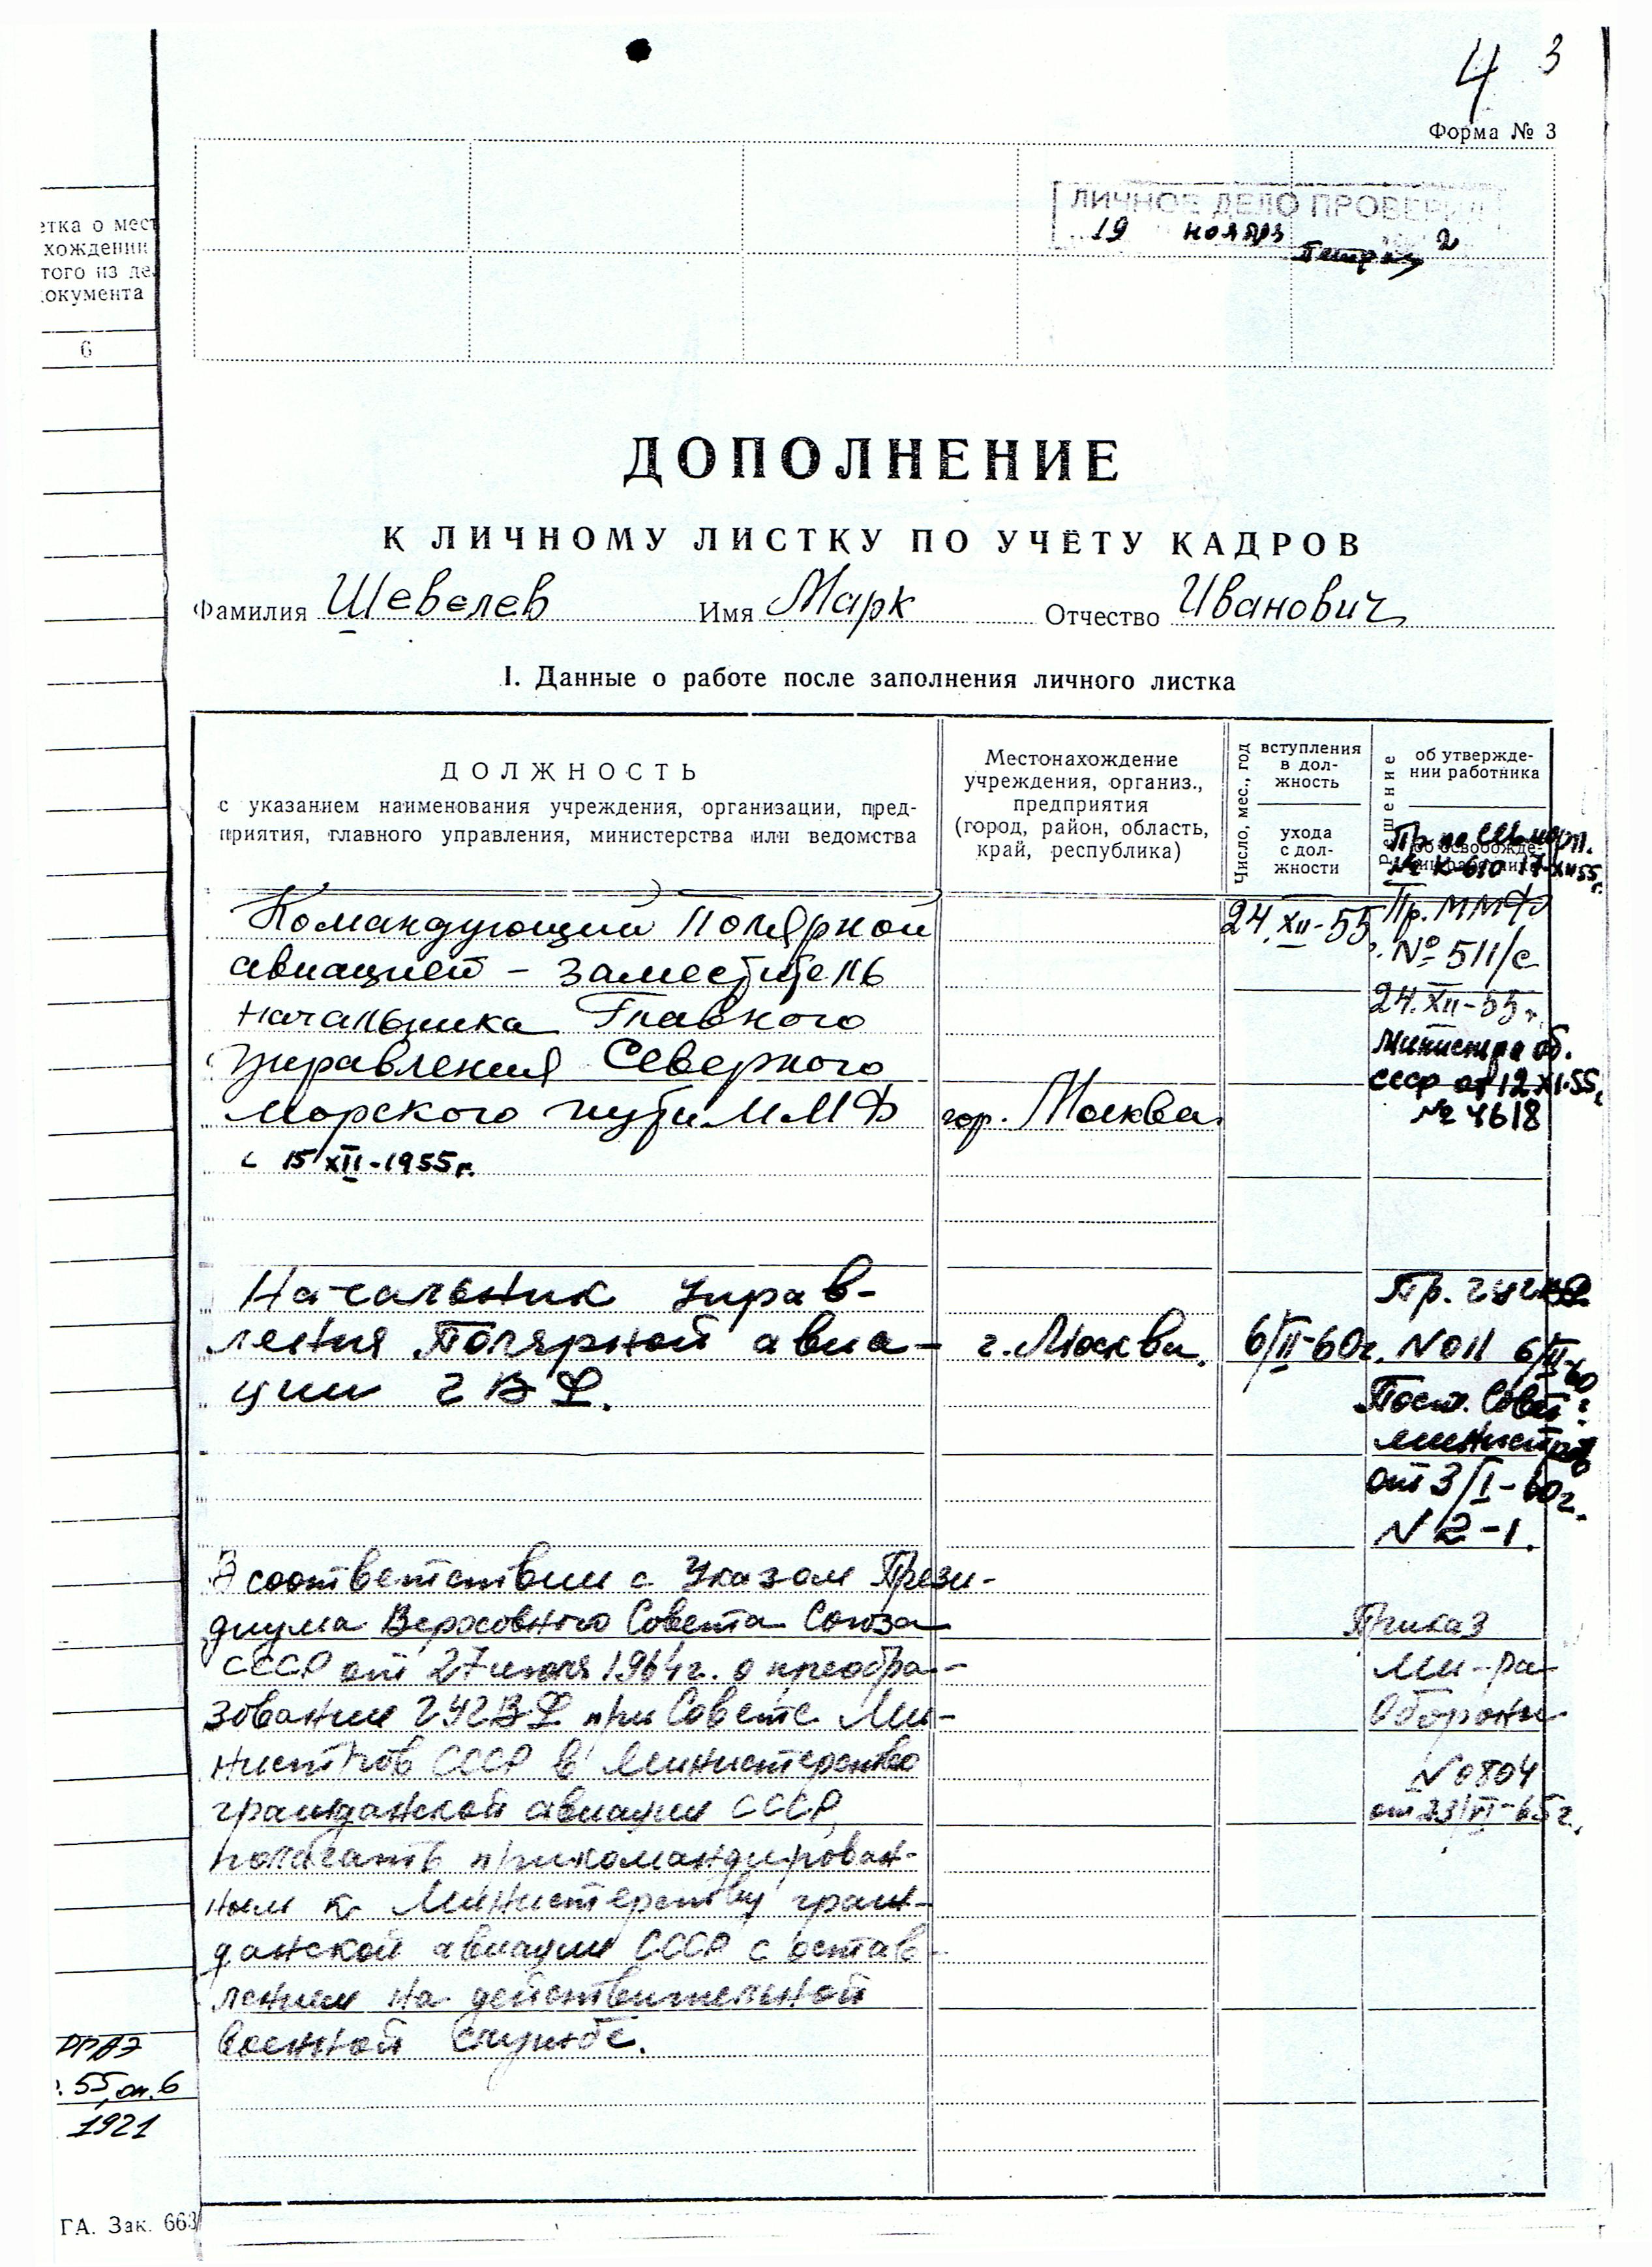 4 3
Форма № 3
ЛИЧНОЕ ДЕЛО ПРОВЕРИЛ
19 ноября 2
етка о мест
хождении
того из де
окумента
6
ДОПОЛНЕНИЕ
К ЛИЧНОМУ ЛИСТКУ ПО УЧЁТУ КАДРОВ
Фамилия Шевелев Имя Марк Отчество Иванович
I. Данные о работе после заполнения личного листка
ДОЛЖНОСТЬ
с указанием наименования учреждения, организации, пред-
приятия, главного управления, министерства или ведомства
Местонахождение
учреждения, организ.,
предприятия
(город, район, область,
край, республика)
Число, мес., год
вступления
в дол-
жность
ухода
с дол-
жности
Решение
об утвержде-
нии работника
об освобожде-
нии работника
Пр. по
№ К-610 17-XII 55 г.
Командующий Полярной
авиацией – заместитель
начальника Главного
управления Северного
морского пути ММФ
с 15/XII-1955 г.
гор. Москва.
24.XII-55 г.
Пр. ММФ
№ 511/с
24.XII-55 г.
Министра об.
СССР от 12.XI.55 г.
№ 4618
Начальник Управ-
ления Полярной авиа-
ции ГВФ.
г. Москва.
6/II-60 г.
Пр. ГУГВФ
N 011 6/II-60
Пост. Совет
министров
от 3/I-60 г.
N 2-1.
В соответствии с Указом Прези-
диума Верховного Совета Союза
СССР от 27 июля 1964 г. о преобра-
зовании ГУГВФ при Совете Ми-
нистров СССР в Министерство
гражданской авиации СССР,
полагать прикомандирован-
ным к Министерству граж-
данской авиации СССР с остав-
лением на действительной
военной службе.
Приказ
Ми-ра
Обороны
N 0804
от 23/VI-65 г.
РГАЭ
55, оп. 6
1921
ГА. Зак. 663